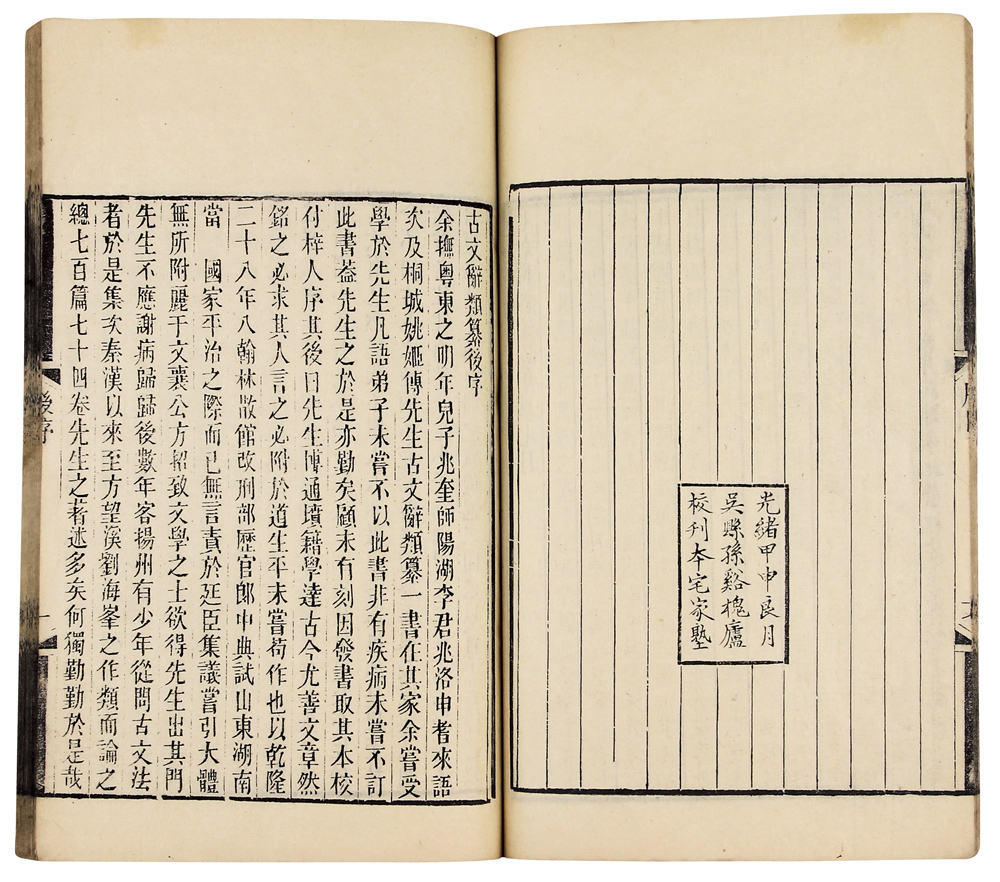 光緒甲申良月
吳縣孫谿槐廬
校刊本宅家塾
古文辭類纂後序
余撫粵東之明年兒子兆奎師陽湖李君兆洛申耆來語
次及桐城姚姬傳先生古文辭類纂一書在其家余嘗受
學於先生凡語弟子未嘗不以此書非有疾病未嘗不訂
此書葢先生之於是亦勤矣顧未有刻因發書取其本校
付梓人序其後曰先生博通墳籍學達古今尤善文章然
銘之必求其人言之必附於道生平未嘗苟作也以乾隆
二十八年入翰林散館改刑部歷官郎中典試山東湖南
當 國家平治之際而已無言責於廷臣集議嘗引大體
無所附麗于文襄公方招致文學之士欲得先生出其門
先生不應謝病歸歸後數年客揚州有少年從問古文法
者於是集次秦漢以來至方望溪劉海峯之作類而論之
總七百篇七十四卷先生之著述多矣何獨勤勤於是哉
後序
一